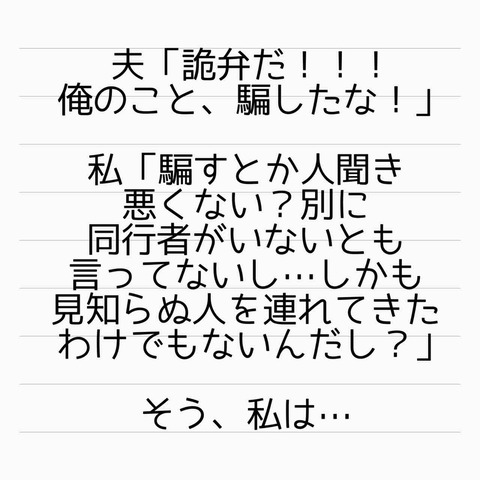 夫「詭弁だ！！！
俺のこと、騙したな！」
私「騙すとか人聞き
悪くない？別に
同行者がいないとも
言ってないし…しかも
見知らぬ人を連れてきた
わけでもないんだし？」
そう、私は…